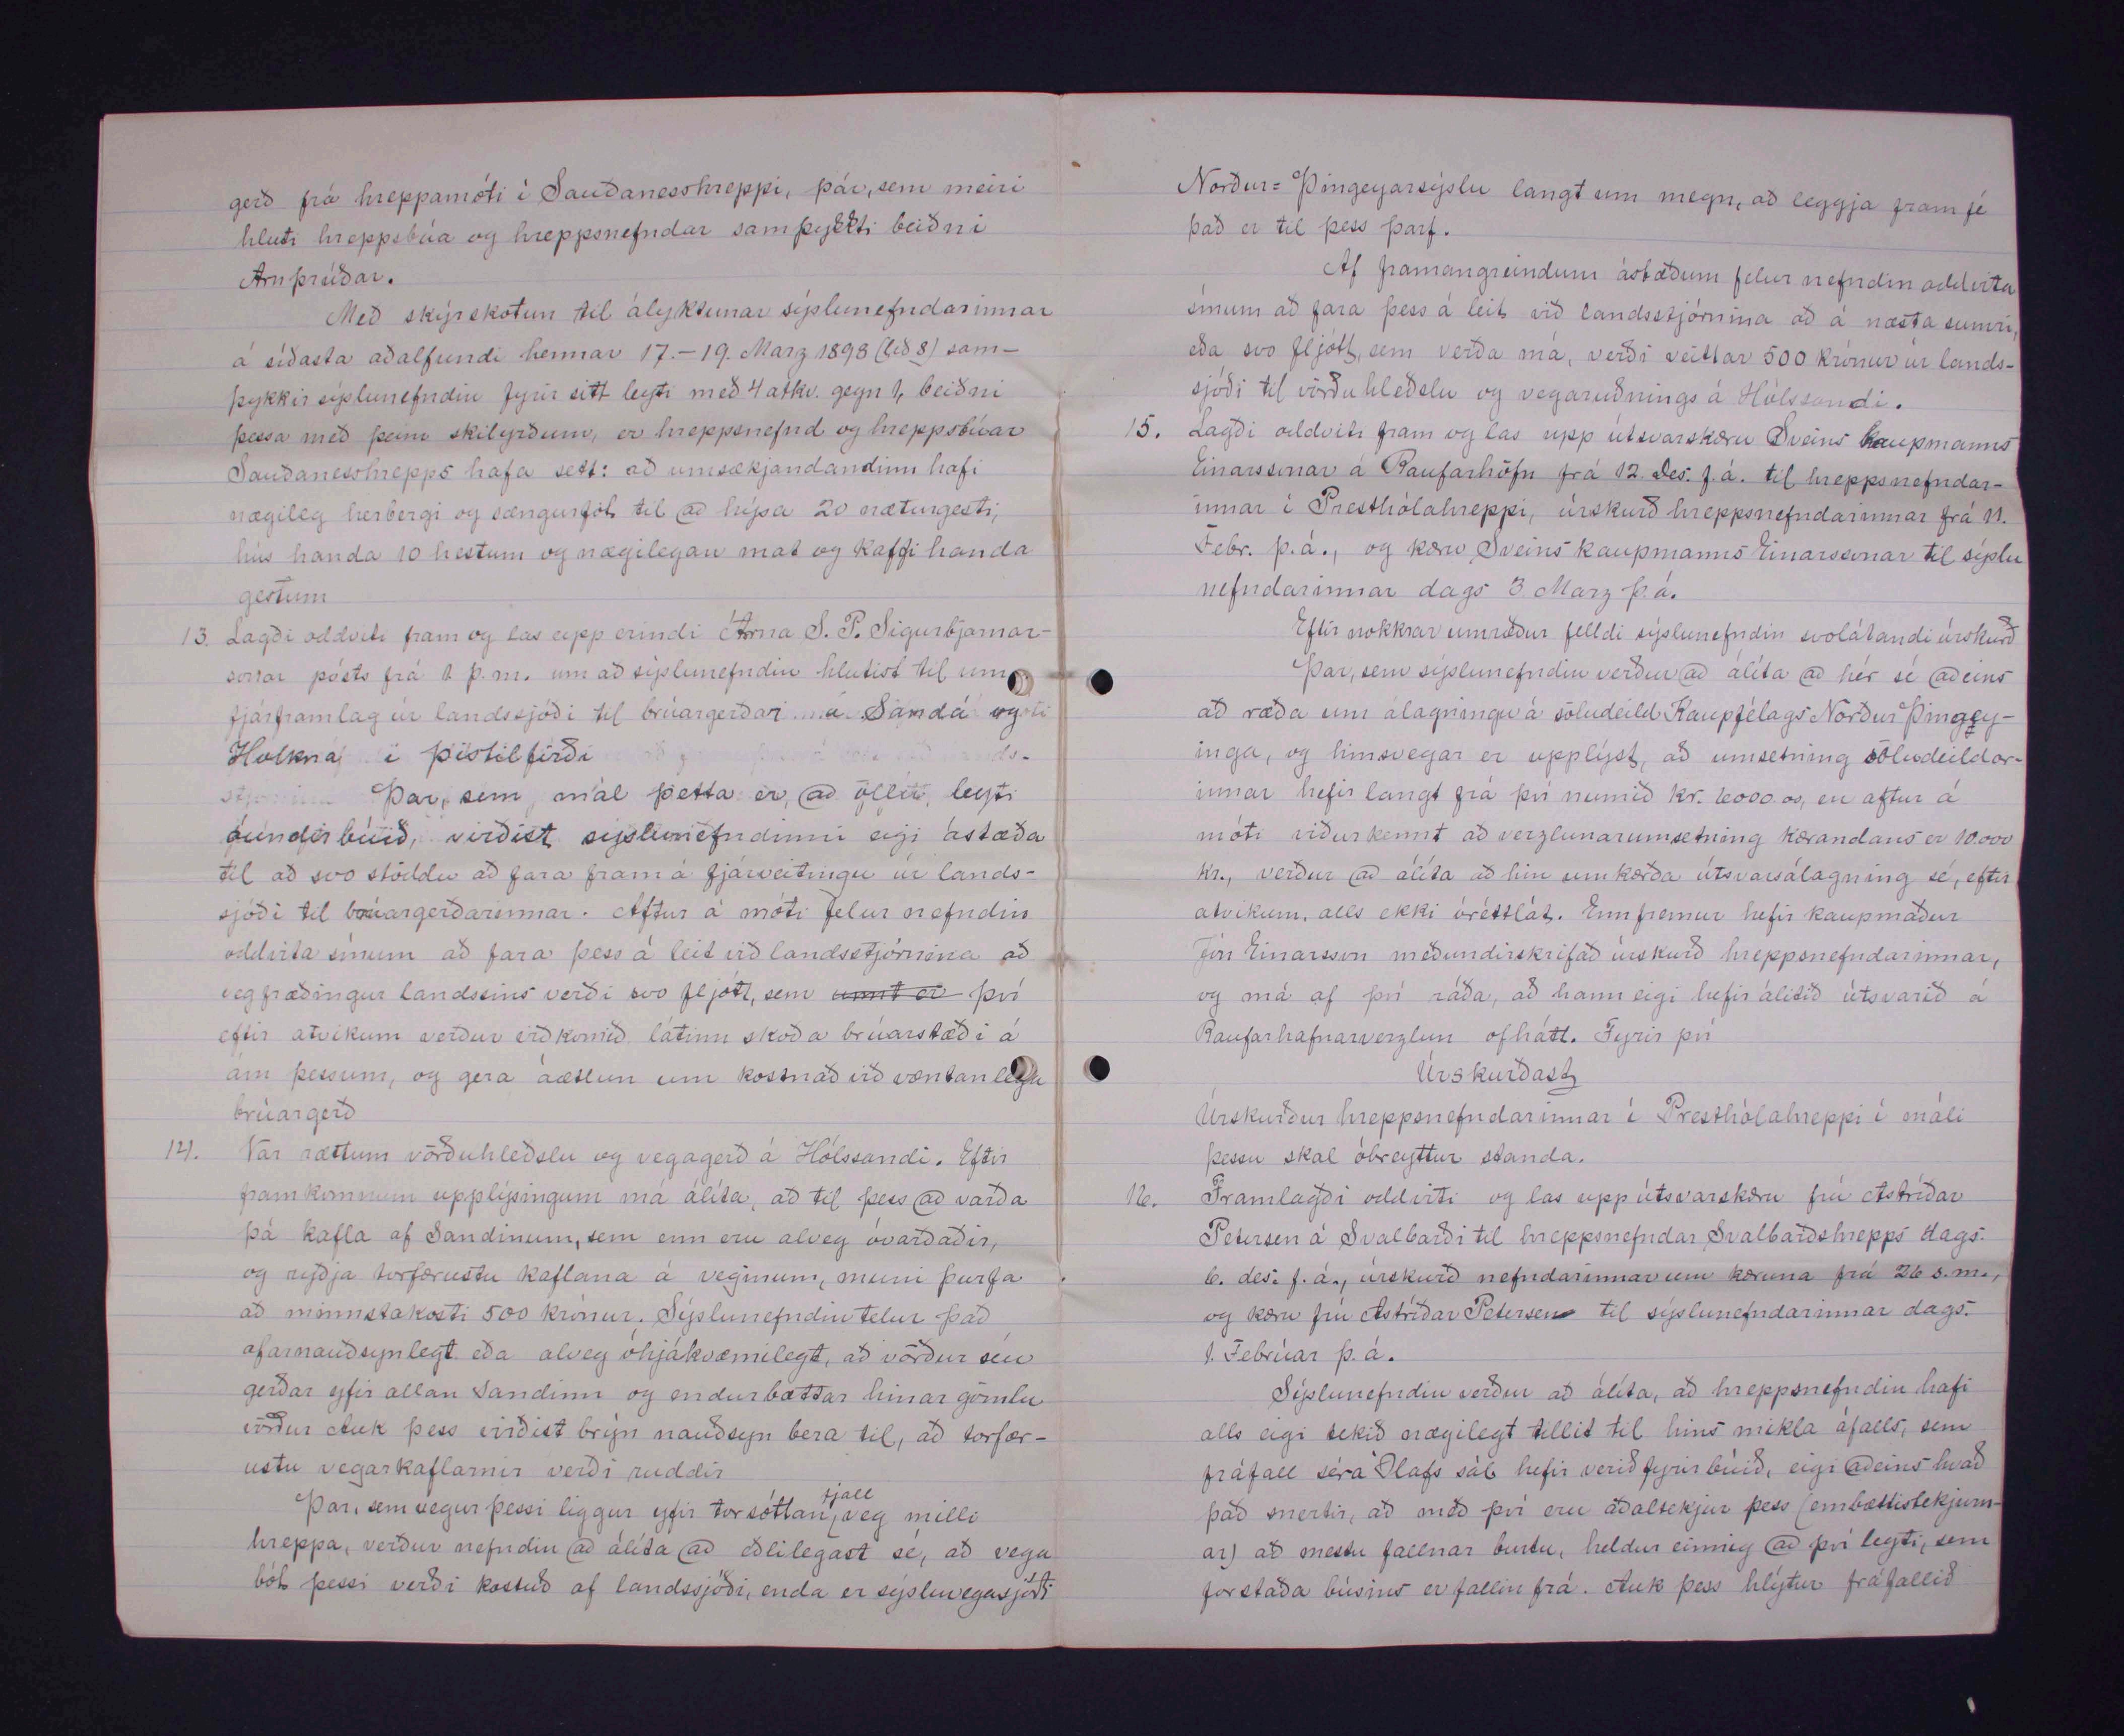 gerð frá hreppamóti í Sauðanesshreppi, þar, sem meiri
hluti hreppsbúa og hreppsnefndar samþykkti beiðni
Arnþrúðar.
Með skýrskotun til ályktunar sýslunefndarinnar
á síðasta aðalfundi hennar 17.-19. Marz 1898 (lið 8) sam-
þykkir sýslunefndin fyrir sitt leyti með 4 atkv. gegn 1, beiðni
þessa með þeim skilyrðum, er hreppsnefnd og hreppsbúar
Sauðanesshrepps hafa sett: að umsækjandandinn hafi
nægileg herbergi og sængurföt til að hýsa 20 næturgesti,
hús handa 10 hestum og nægilegan mat og kaffi handa
gestum
13. Lagði oddviti fram og las upp erindi Árna S. P. Sigurbjarnar-
sonar pósts frá 1 þ.m. um að sýslunefndin hlutist til um
fjárframlag úr landssjóði til brúargerðar á Sandá og
Holkná í þistilfirði
Þar, sem mál þetta er, að öllu leyti
óundirbúið, virðist sýslunefndinni eigi ástæða
til að svo stöddu að fara fram á fjárveitingu úr lands-
sjóði til brúargerðarinnar. Aftur á móti felur nefndin
oddvita sínum að fara þess á leit við landsstjórnina að
vegfræðingur landssins verði svo fljótt, sem unnt er því
eftir atvikum verður viðkomið látinn skoða brúarstæði á
ám þessum, og gera áætlun um kostnað við væntanlega
brúargerð
14. Var rættum vörðuhleðslu og vegagerð á Hólssandi. Eftir
framkomnum upplýsingum má álíta, að til þess að varða
þá kafla af Sandinum, sem enn eru alveg óvarðaðir,
og ryðja torfærustu kaflana á veginum, muni þurfa
að minnstakosti 500 krónur. Sýslunefndin telur það
afarnauðsynlegt eða alveg óhjákvæmilegt, að vörður séu
gerðar yfir allan Sandinn og endurbættar hinar gömlu
vörður Auk þess virðist brýn nauðsyn bera til, að torfær-
ustu vegarkaflarnir verði ruddir
Þar, sem vegur þessi liggur yfir torsóttan fjallveg milli
hreppa, verður nefndin að álíta að eðlilegast sé, að vega
bót þessi verði kostuð af landssjóði, enda er sýsluvegasjóði
Norður=Þingeyarsýslu langt um megn, að leggja fram fé
það er til þess þarf.
Af framangreindum ástæðum felur nefndin oddvita
sínum að fara þess á leit við landsstjórnina að á næsta sumri,
eða svo fljótt, sem verða má, verði veittar 500 krónur úr lands-
sjóði til vörðuhleðslu og vegaruðnings á Hólssandi.
15. Lagði oddviti fram og las upp útsvarskæru Sveins kaupmanns
Einarssonar á Raufarhöfn frá 12. Des. f.á. til hreppsnefndar-
innar í Presthólahreppi, úrskurð hreppsnefndarinnar frá 11.
Febr. þ.á., og kæru Sveins kaupmanns Einarssonar til sýslu
nefndarinnar dags 3 Marz þ.á.
Eftir nokkrar umræður felldi sýslunefndin svolátandi úrskurð
Þar, sem sýslunefndin verður að álíta að hér sé aðeins
að ræða um álagningu á söludeild Kaupfélags Norður Þingey-
inga, og hinsvegar er upplýst, að umsetning söludeildar-
innar hefir langt frá því numið kr. 6000.00, en aftur á
móti viðurkennt að verzlunarumsetning kærandans er 10.000
kr., verður að álíta að hin umkærða útsvarsálagning sé, eftir
atvikum, alls ekki óréttlát. Ennfremur hefir kaupmaður
Jón Einarsson meðundirskrifað úrskurð hreppsnefndarinnar,
og má af því ráða, að hann eigi hefir álitið útsvarið á
Raufarhafnarverzlun ofhátt. Fyrir því
Úrskurðast
Úrskurður hreppsnefndarinnar í Presthólahreppi í máli
þessu skal óbreyttur standa.
16. Framlagði oddviti og las upp útsvarskæru frú Astríðar
Petersen á Svalbarði til hreppsnefndar Svalbarðshrepps dags.
6. des. f.á., úrskurð nefndarinnar um kæruna frá 26 s.m.,
og kæru frú Astríðar Petersen til sýslunefndarinnar dags.
1. Febrúar þ.á.
Sýslunefndin verður að álíta, að hreppsnefndin hafi
alls eigi tekið nægilegt tillit til hins mikla áfalls, sem
fráfall séra Olafs sál. hefir verið fyrir búið, eigi aðeins hvað
það snertir, að með því eru aðaltekjur þess (embættistekjurn-
ar) að mestu fallnar burtu, heldur einnig að því leyti, sem
forstaða búsins er fallin frá. Auk þess hlýtur fráfallið